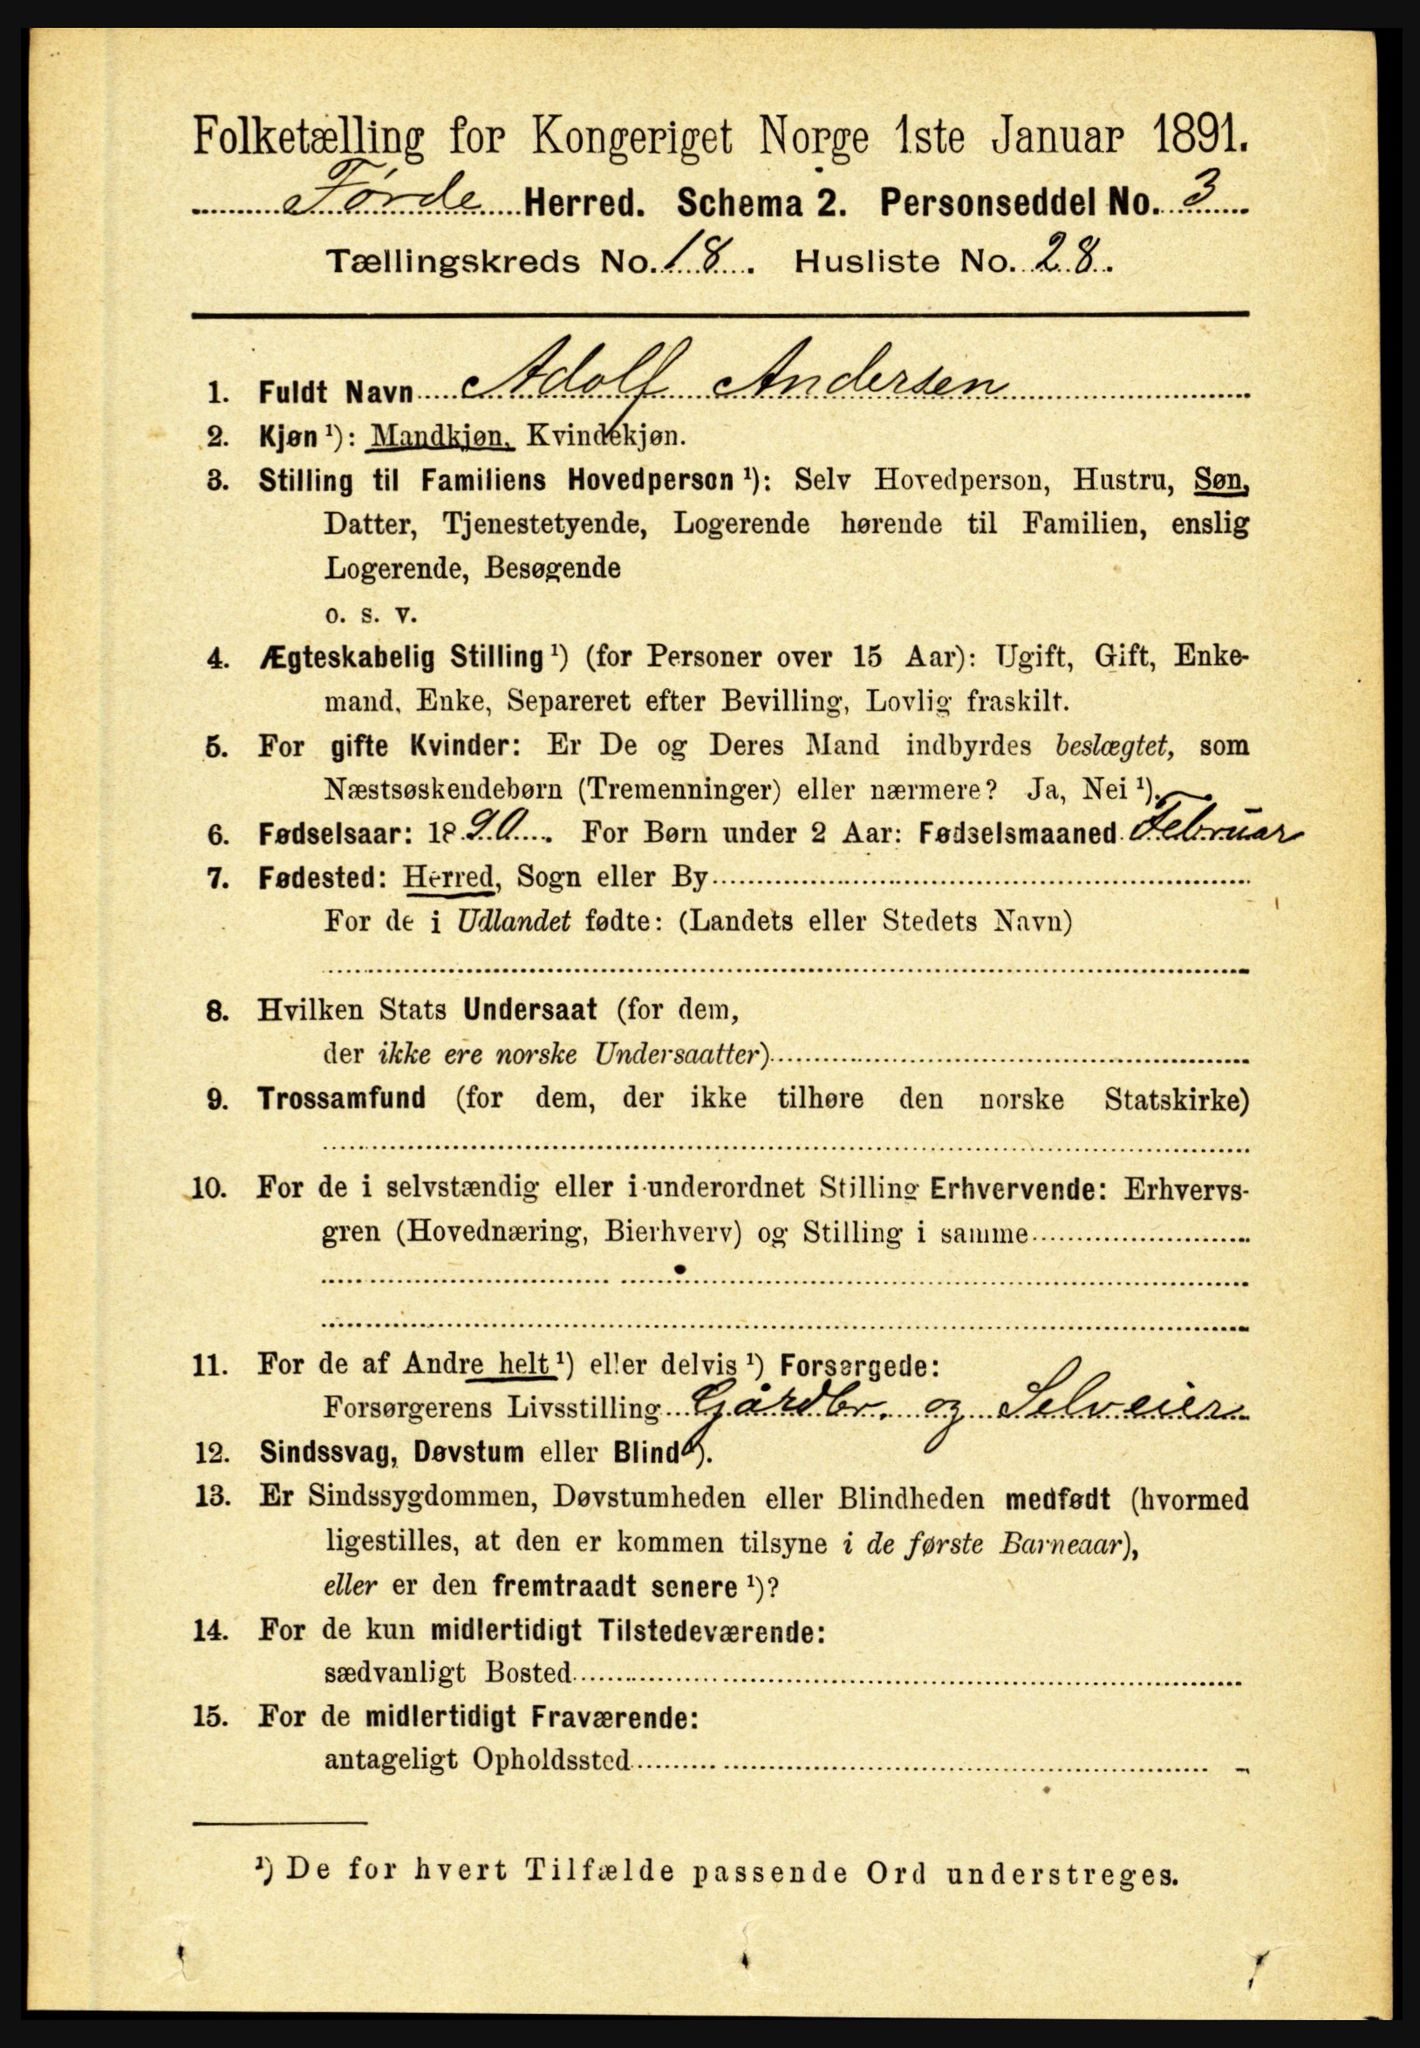 Folketælling for Kongeriget Norge 1ste Januar 1891.
Førde Herred. Schema 2. Personseddel No. 3
Tællingskreds No. 18. Husliste No. 28.
1. Fuldt Navn Adolf Andersen
2. Kjøn ¹): Mandkjøn, Kvindekjøn.
3. Stilling til Familiens Hovedperson ¹): Selv Hovedperson, Hustru, Søn,
Datter, Tjenestetyende, Logerende hørende til Familien, enslig
Logerende, Besøgende
o. s. v.
4. Ægteskabelig Stilling ¹) (for Personer over 15 Aar): Ugift, Gift, Enke-
mand, Enke, Separeret efter Bevilling, Lovlig fraskilt.
5. For gifte Kvinder: Er De og Deres Mand indbyrdes beslægtet, som
Næstsøskendebørn (Tremenninger) eller nærmere? Ja, Nei ¹).
6. Fødselsaar: 1890. For Børn under 2 Aar: Fødselsmaaned Februar
7. Fødested: Herred, Sogn eller By
For de i Udlandet fødte: (Landets eller Stedets Navn)
8. Hvilken Stats Undersaat (for dem,
der ikke ere norske Undersaatter)
9. Trossamfund (for dem, der ikke tilhøre den norske Statskirke)
10. For de i selvstændig eller i underordnet Stilling Erhvervende: Erhvervs-
gren (Hovednæring, Bierhverv) og Stilling i samme
11. For de af Andre helt ¹) eller delvis ¹) Forsørgede:
Forsørgerens Livsstilling Gårdbr. og Selveier
12. Sindssvag, Døvstum eller Blind ¹).
13. Er Sindssygdommen, Døvstumheden eller Blindheden medfødt (hvormed
ligestilles, at den er kommen tilsyne i de første Barneaar),
eller er den fremtraadt senere ¹)?
14. For de kun midlertidigt Tilstedeværende:
sædvanligt Bosted
15. For de midlertidigt Fraværende:
antageligt Opholdssted
¹) De for hvert Tilfælde passende Ord understreges.